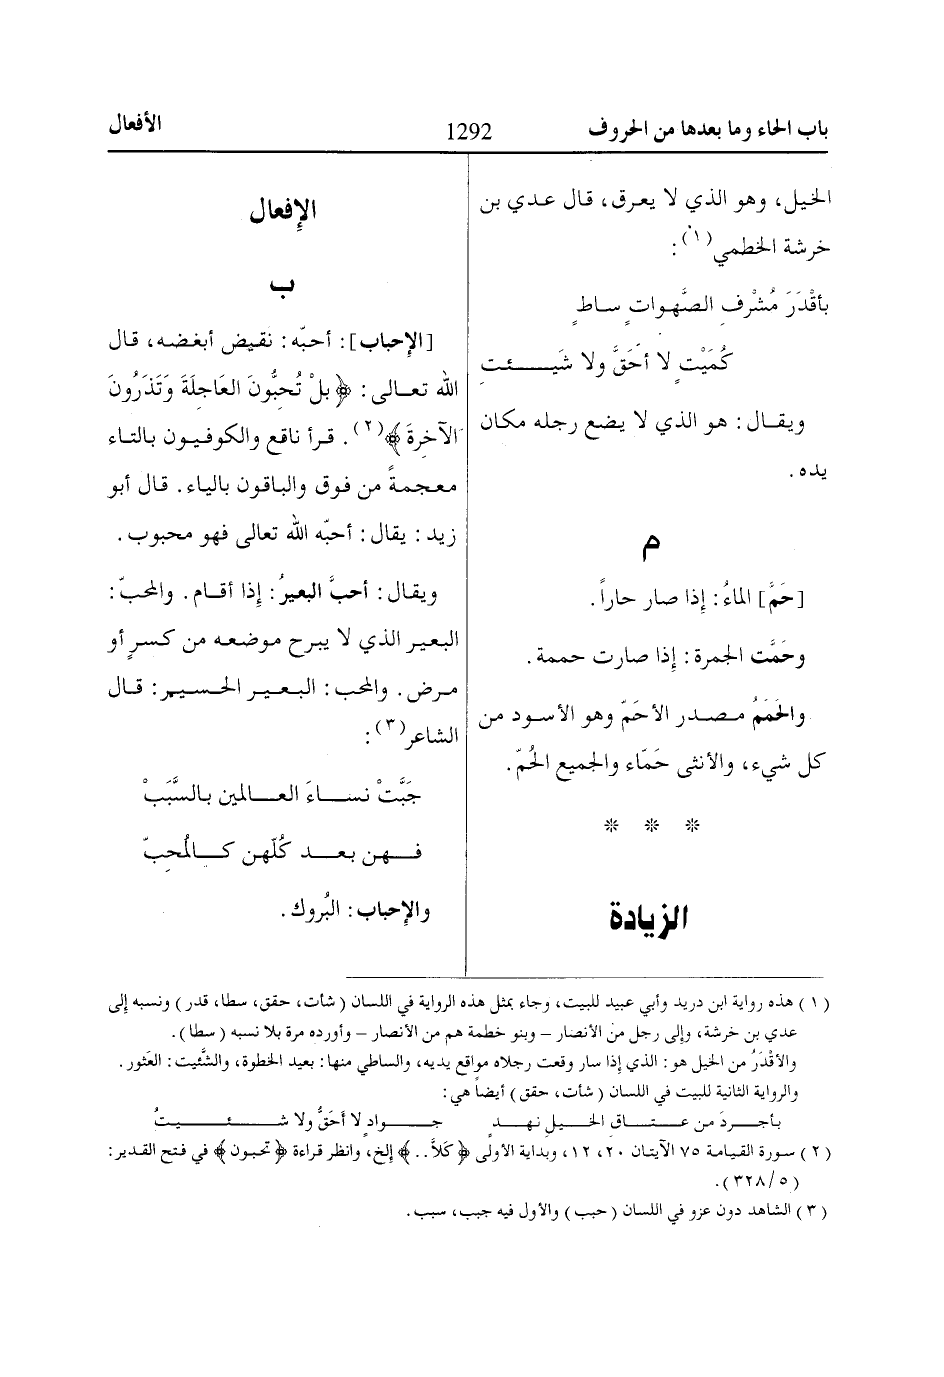 باب الحاء وما بعدها من الحروف
1292
الأفعال
الخيل، وهو الذي لا يعرق، قال عدي بن
خرشة الخطمي(١):
بأقْدَرَ مُشْرفِ الصَّهواتِ ساطٍ
كُمَيْتٍ لا أحَقَّ ولا شَئيت
ويقال: هو الذي لا يضع رجله مكان
يده.
م
[حَمَّ] الماءُ: إذا صار حاراً.
وحَمَّت الجمرة: إذا صارت حممة.
والحَمَمُ مصدر الأحَمّ وهو الأسود من
كل شيء، والأنثى حَمّاء والجميع الحُمّ.
* * *
الزيادة
الإفعال
ب
[الإحباب]: أحبّه: نقيض أبغضه، قال
الله تعالى: ﴿بلْ تُحبُّونَ العَاجلَةَ وَتَذَرُونَ
الآخرَةَ﴾(٢). قرأ نافع والكوفيون بالتاء
معجمةً من فوق والباقون بالياء. قال أبو
زيد: يقال: أحبّه الله تعالى فهو محبوب.
ويقال: أحبَّ البعيرُ: إذا أقام. والمحبّ:
البعير الذي لا يبرح موضعه من كسرٍ أو
مرض. والمحب: البعير الحسير: قال
الشاعر(٣):
جَبَّتْ نساءَ العالمين بالسَّبَبْ
فهن بعد كُلّهن كالمُحِبّ
والإحباب: البُروك.
(١) هذه رواية ابن دريد وأبي عبيد للبيت، وجاء بمثل هذه الرواية في اللسان (شأت، حقق، سطا، قدر) ونسبه إلى
عدي بن خرشة، وإلى رجل من الأنصار – وبنو خطمة هم من الأنصار – وأورده مرة بلا نسبه (سطا).
والأقْدَرُ من الخيل هو: الذي إذا سار وقعت رجلاه مواقع يديه، والساطي منها: بعيد الخطوة، والشَّئيت: العَثور.
والرواية الثانية للبيت في اللسان (شأت، حقق) أيضاً هي:
بأجردَ من عتاق الخيلِ نهدٍ جوادٍ لا أحَقُّ ولا شئيتُ
(٢) سورة القيامة ٧٥ الآيتان ٢٠، ١٢، وبداية الأولى ﴿كَلاَّ..﴾ إلخ، وانظر قراءة ﴿تحبون﴾ في فتح القدير:
(٥/٣٢٨).
(٣) الشاهد دون عزو في اللسان (حبب) والأول فيه جبب، سبب.